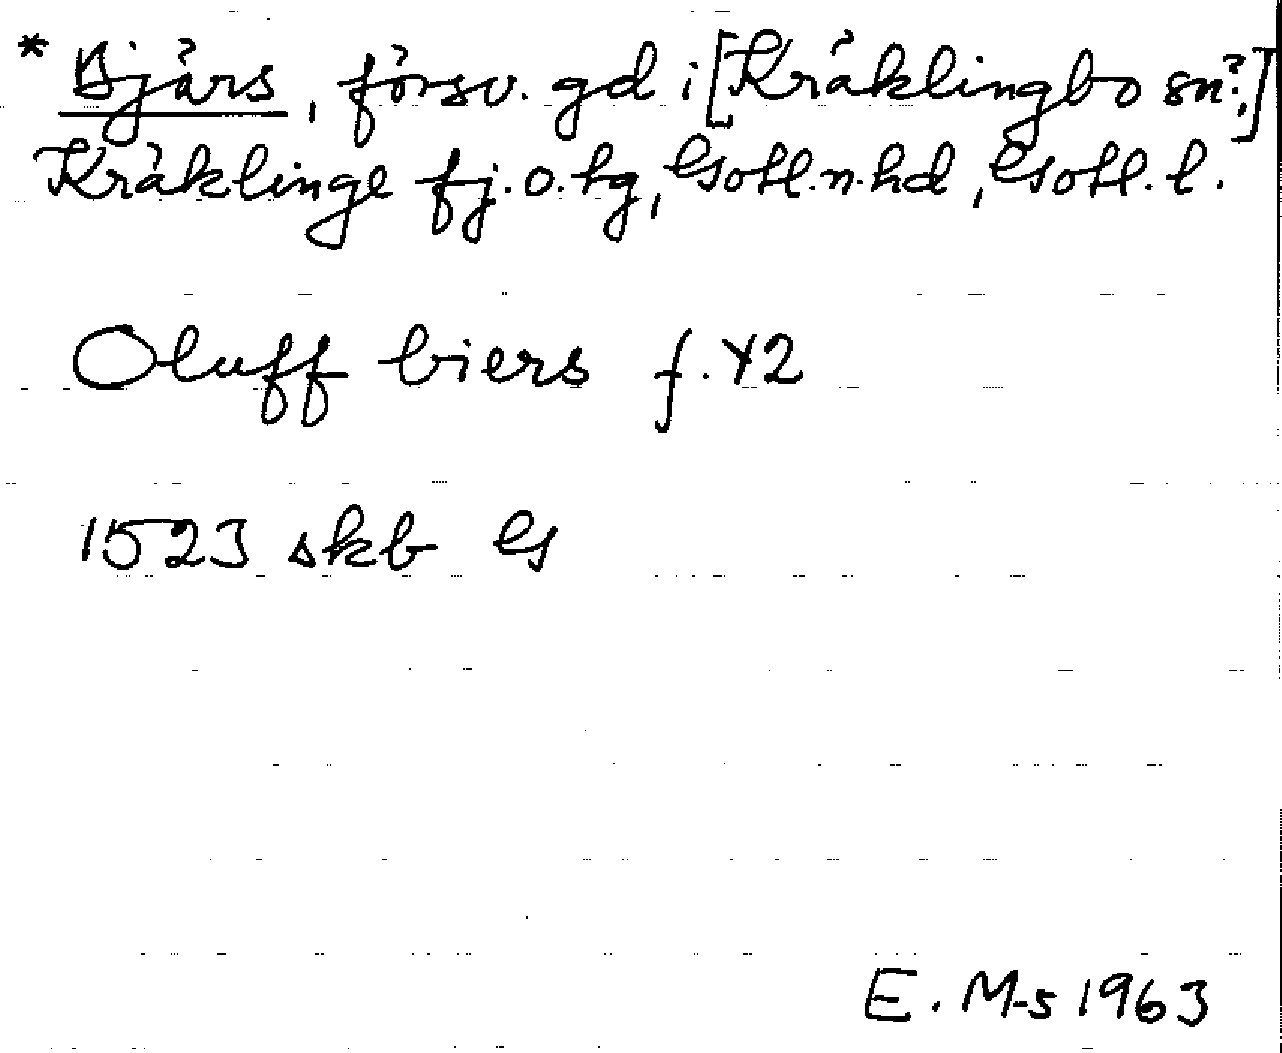 * Bjärs, försv. gd i [Kräklingbo sn?,]
Kräklinge fj. o. tg, Gotl. n. hd, Gotl. l.
Oluff biers f. 42
1523 skb G
E. M-s 1963